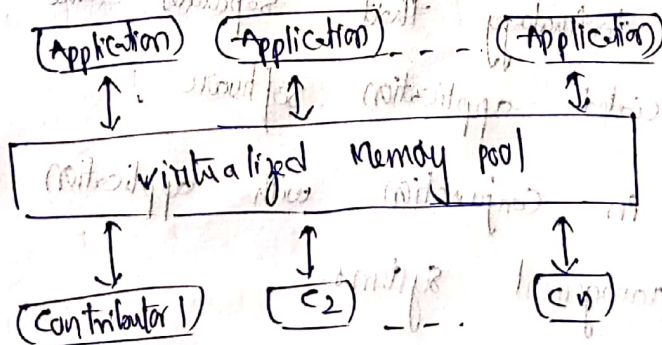 Application Application - - - - Application
virtualized Memory pool
Contributor 1 C2 - - - . Cn